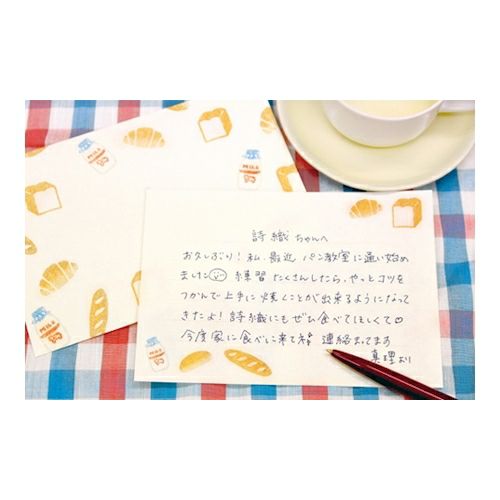 詩織ちゃんへ
お久しぶり!私、最近パン教室に通い始め
ました 練習たくさんしたら、やっとコツを
つかんで上手に焼くことが出来るようになって
きたよ!詩織にもぜひ食べてほしくて♡
今度家に食べに来てネ 連絡まってます
真理より
MILK
MILK